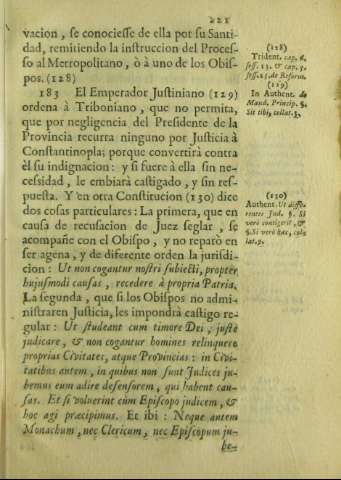 221
vacion, se conociesse de ella por su Santi-
dad, remitiendo la instruccion del Proces-
so al Metropolitano, ò à uno de los Obis-
pos. (128)
183 El Emperador Justiniano (129)
ordena à Triboniano, que no permita,
que por negligencia del Presidente de la
Provincia recurra ninguno por Justicia à
Constantinopla; porque convertirà contra
èl su indignacion: y si fuere à ella sin ne-
cessidad, le embiarà castigado, y sin res-
puesta. Y en otra Constitucion (130) dice
dos cosas particulares: La primera, que en
causa de recusacion de Juez seglar, se
acompañe con el Obispo, y no reparò en
ser agena, y de diferente orden la jurisdi-
cion: Ut non cogantur nostri subiecti, propter
hujusmodi causas, recedere à propria Patria.
La segunda, que si los Obispos no admi-
nistraren Justicia, les impondrà castigo re-
gular: Ut studeant cum timore Dei, justè
judicare, & non cogantur homines relinquere
proprias Civitates, atque Provincias: in Civi-
tatibus autem, in quibus non sunt Judices ju-
bemus eum adire defensorem, qui habent cau-
sas. Et si voluerint cùm Episcopo judicem, &
hoc agi præcipimus. Et ibi: Neque autem
Monachum, nec Clericum, nec Episcopum ju-
be-
(128)
Trident. cap. 6.
sess. 13. & cap. 5.
sess. 25. de Reform.
(129)
In Authent. de
Mand. Princip. §.
Sit tibi, collat. 3.
(130)
Authent. Ut diffe-
rentes Jud. §. Si
verò contigerit, &
§. Si verò hæc, colla
tat. 9.